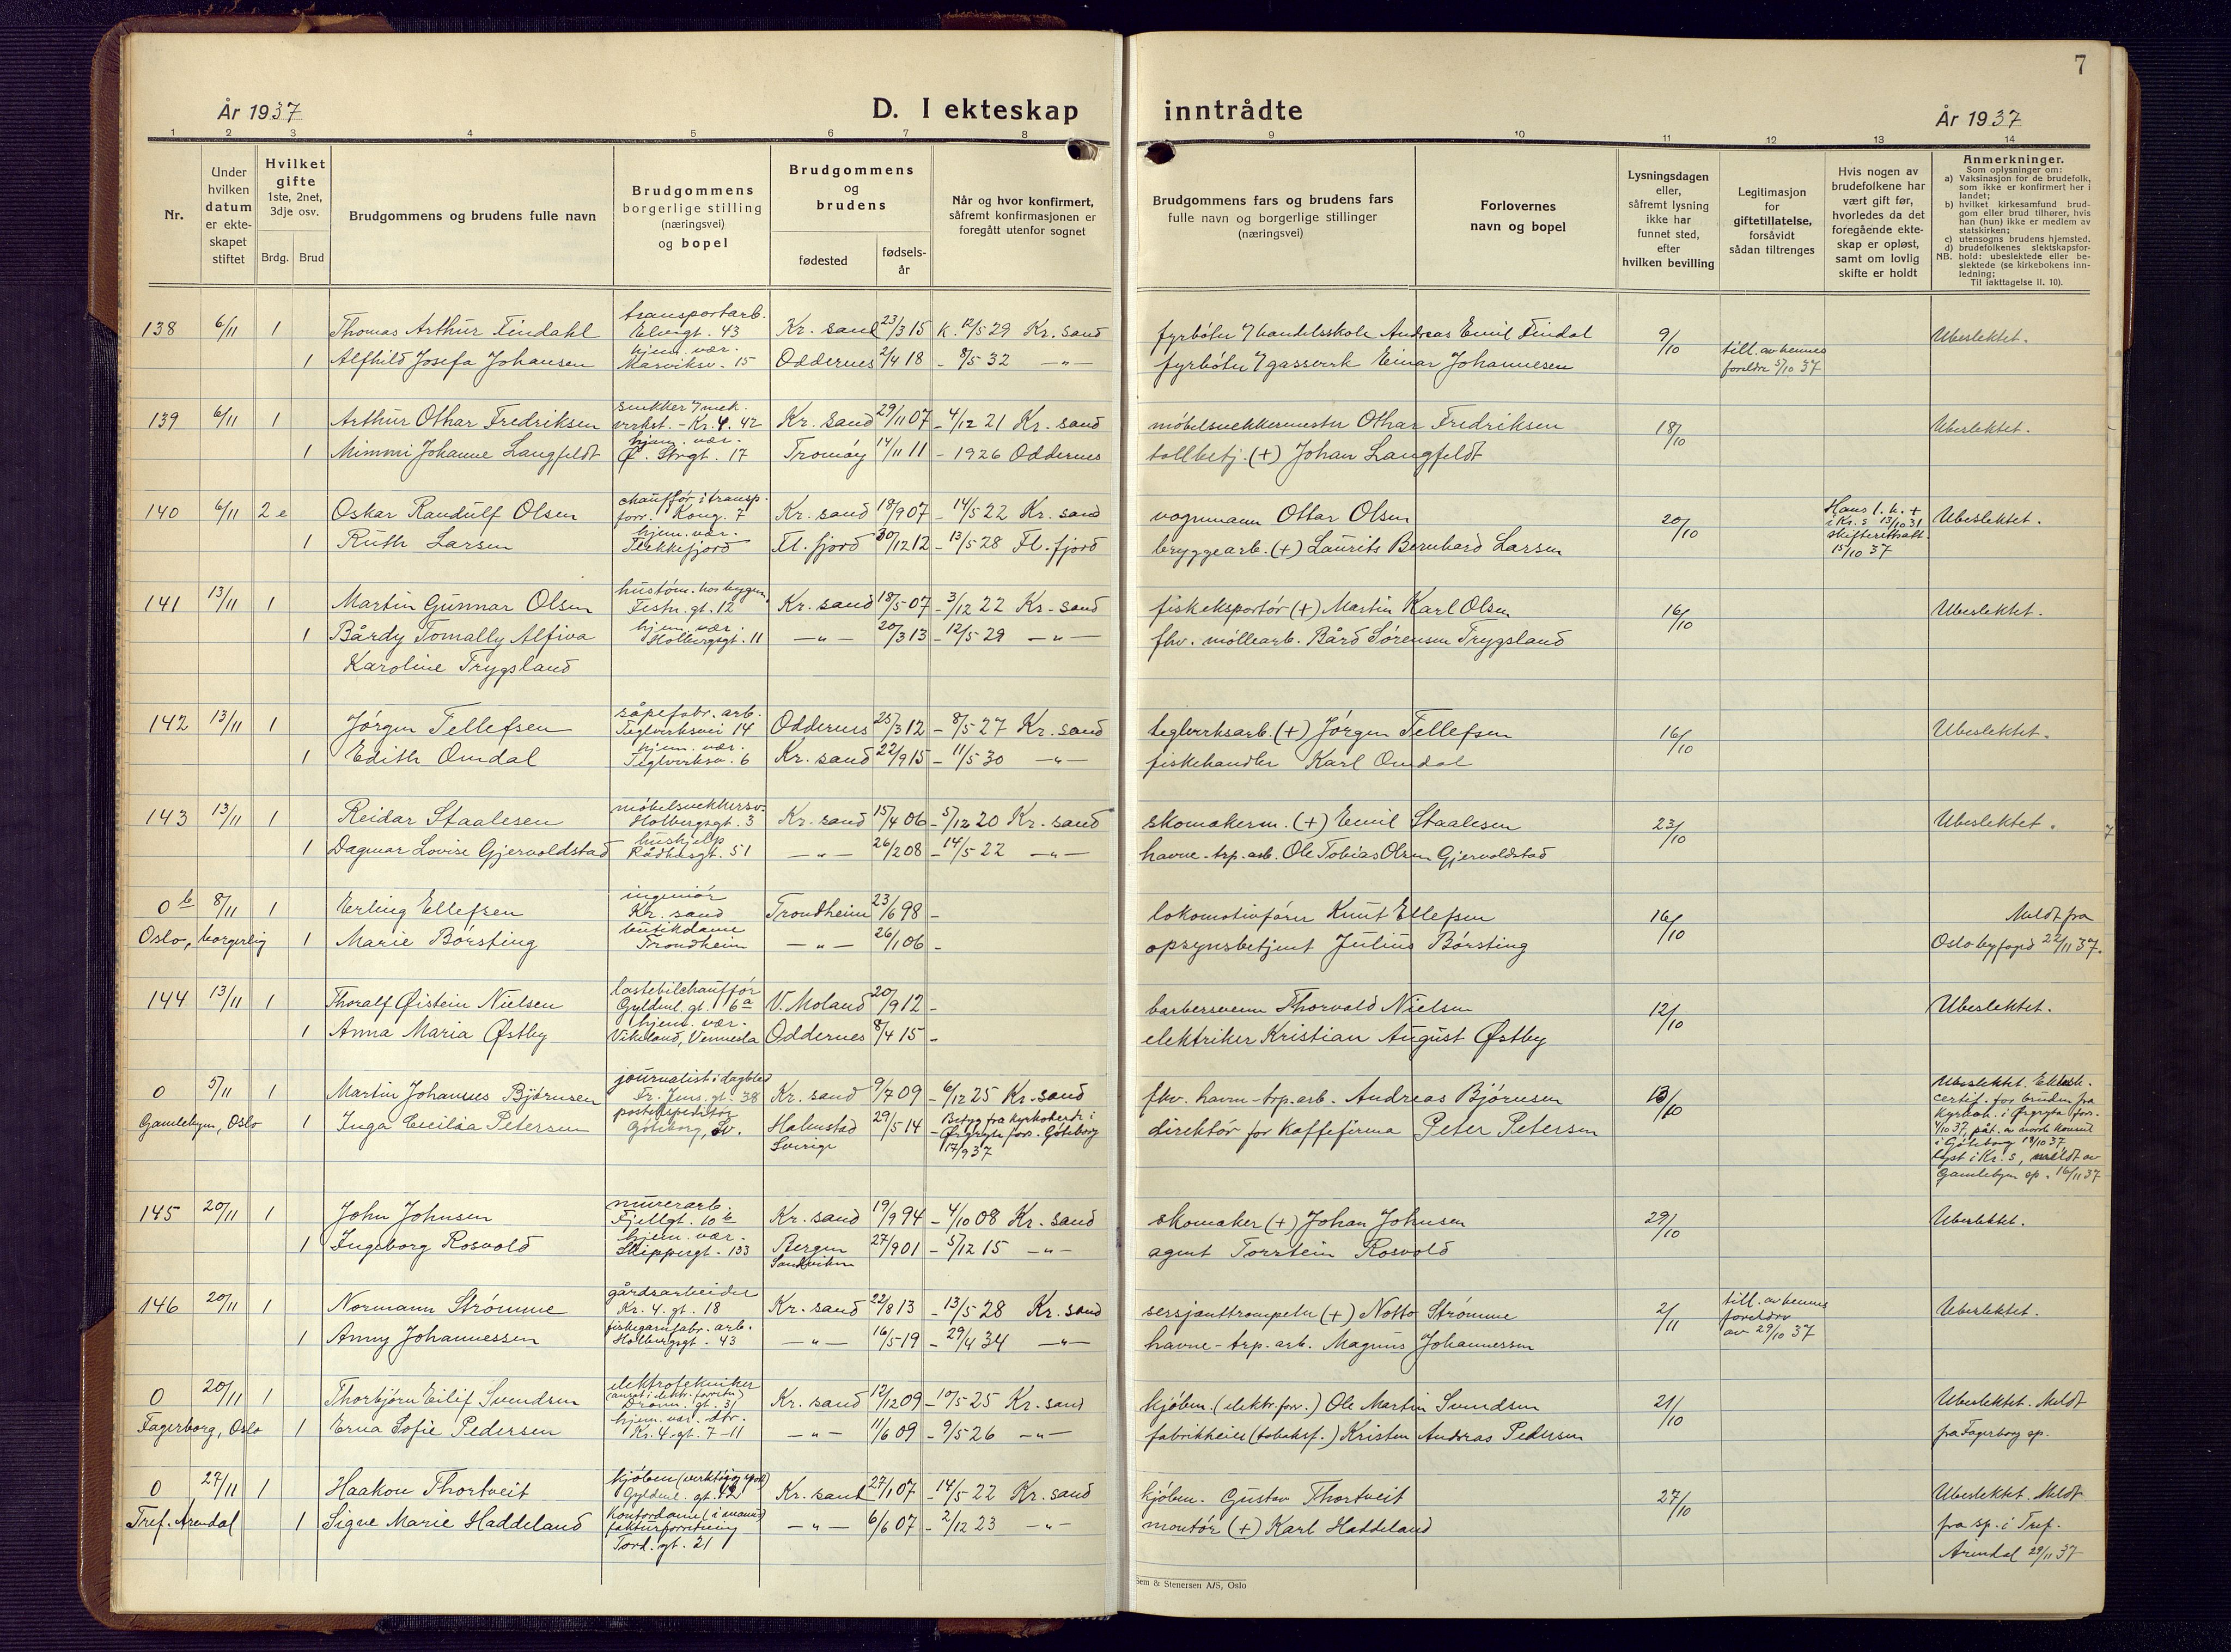 7
År 1937
D. I ekteskap
inntrådte
År 1937
1 2 3 4 5 6 7 8 9 10 11 12 13 14
Nr.
Under
hvilken
datum
er ekte-
skapet
stiftet
Hvilket
gifte
1ste, 2net,
3dje osv.
Brdg. Brud
Brudgommens og brudens fulle navn
Brudgommens
borgerlige stilling
(næringsvei)
og bopel
Brudgommens
og
brudens
fødested
fødsels-
år
Når og hvor konfirmert,
såfremt konfirmasjonen er
foregått utenfor sognet
Brudgommens fars og brudens fars
fulle navn og borgerlige stillinger
(næringsvei)
Forlovernes
navn og bopel
Lysningsdagen
eller,
såfremt lysning
ikke har
funnet sted,
efter
hvilken bevilling
Legitimasjon
for
giftetillatelse,
forsåvidt
sådan tiltrenges
Hvis nogen av
brudefolkene har
vært gift før,
hvorledes da det
foregående ekte-
skap er opløst,
samt om lovlig
skifte er holdt
Anmerkninger.
Som oplysninger om:
a) Vaksinasjon for de brudefolk,
som ikke er konfirmert her i
landet;
b) hvilket kirkesamfund brud-
gom eller brud tilhører, hvis
han (hun) ikke er medlem av
statskirken;
c) utensogns brudens hjemsted.
d) brudefolkenes slektskapsfor-
NB. hold: ubeslektede eller be-
slektede (se kirkebokens inn-
ledning;
Til iakttagelse II. 10).
transportarb.
138 6/11 1 Thomas Arthur Findahl Elvegt. 43 Kr. sand 23/3 15 k. 12/5 29 Kr. sand fyrbøter v/ handelsskole Andreas Emil Findal 9/10 Ubeslektet.
hjem. vær.
1 Alfhild Josefa Johansen Marviksv. 15 Oddernes 2/4 18 - 8/5 32 -"- fyrbøter v/ gassverk Einar Johannesen till. av hennes
foreldre 5/10 37
snekker v/ mek.
139 6/11 1 Arthur Othar Fredriksen verkst. - Kr. 4. 42 Kr. sand 29/11 07 - 4/12 21 Kr. sand møbelsnekkermester Othar Fredriksen 18/10 Ubeslektet.
hjem. vær.
1 Mimmi Johanne Langfeldt Ø. Strgt. 17 Tromøy 14/11 11 - 1926 Oddernes tollbetj. (+) Johan Langfeldt
chauffør i transp.
140 6/11 2e Oskar Randulf Olsen forr. Kong. 7 Kr. sand 18/9 07 - 14/5 22 Kr. sand vognmann Ottar Olsen 20/10 Hans 1. h. +
i Kr. s 13/10 31
skifteattest
15/10 37 Ubeslektet.
hjem. vær.
1 Ruth Larsen Flekkefjord Fl. fjord 30/12 12 - 13/5 28 Fl. fjord bryggearb. (+) Laurits Bernhard Larsen
141 13/11 1 Martin Gunnar Olsen Festn. gt. 12 Kr. sand 18/5 07 - 3/12 22 Kr. sand fiskeksportør (+) Martin Karl Olsen 16/10 Ubeslektet.
hjem. vær.
1 Bårdy Tomally Alfiva Holbergsgt. 11 -"- 20/3 13 - 12/5 29 -"- fhv. møllearb. Bård Sørensen Trygsland
Karoline Trygsland
såpefabr. arb.
142 13/11 1 Jørgen Tellefsen Teglverksvei 14 Oddernes 25/3 12 - 8/5 27 Kr. sand teglverksarb. (+) Jørgen Tellefsen 16/10 Ubeslektet.
hjem. vær.
1 Edith Omdal Teglverksv. 6 Kr. sand 22/9 15 - 11/5 30 -"- fiskehandler Karl Omdal
møbelsnekkersv.
143 13/11 1 Reidar Staalesen Holbergsgt. 3 Kr. sand 15/4 06 - 5/12 20 Kr. sand skomakerm. (+) Emil Staalesen 23/10 Ubeslektet.
hushjelp
1 Dagmar Lovise Gjervoldstad Rådhusgt. 51 -"- 26/2 08 - 14/5 22 -"- havne-trp. arb. Ole Tobias Olsen Gjervoldstad
ingeniør
0 b 8/11 1 Erling Ellefsen Kr. sand Trondheim 23/6 98 - lokomotivfører Knut Ellefsen 16/10 Meldt fra
butikdame
Oslo, borgerlig 1 Marie Børsting Trondheim -"- 26/1 06 - opsynsbetjent Julius Børsting Oslo byfogd 22/11 37.
lastebilchauffør
144 13/11 1 Thoralf Øistein Nielsen Gyldenl. gt. 6a V. Moland 20/9 12 - barbersvenn Thorvald Nielsen 12/10 Ubeslektet.
hjem. vær.
1 Anna Maria Østby Vikeland, Vennesla Oddernes 8/4 15 - elektriker Kristian August Østby
journalist i dagblad
0 5/11 1 Martin Johannes Bjørnsen Fr. Jens. gt. 38 Kr. sand 9/7 09 - 6/12 25 Kr. sand fhv. havne-trp. arb. Andreas Bjørnsen 13/10 Ubeslektet. Ektesk.
certif. for bruden fra
kyrkoh. i Örgryte förs.
4/10 37, påt. av norsk konsul
i Göteborg 18/10 37
lyst i Kr. s, meldt av
Gamlebyen sp. 16/11 37
postekspeditør
Gamlebyen, Oslo 1 Inga Cecilia Petersen Göteborg, Sv. Halmstad
Sverige 29/5 14 Betyg fra kyrkoherde i
- Örgryte förs. Göteborg
17/9 37 direktør for kaffefirma Peter Petersen
murerarb.
145 20/11 1 John Johnsen Fjellgt. 10 b Kr. sand 19/9 94 - 4/10 08 Kr. sand skomaker (+) Johan Johnsen 29/10 Ubeslektet.
hjem. vær.
1 Ingeborg Rosvold Skippergt. 133 Bergen
Sandviken 27/9 01 - 5/12 15 -"- agent Torstein Rosvold
gårdsarbeider
146 20/11 1 Normann Strømme Kr. 4. gt. 18 Kr. sand 22/8 13 - 13/5 28 Kr. sand sersjanttrompeter (+) Notto Strømme 2/11 till. av hennes
foreldre
av 29/10 37 Ubeslektet.
fiskegarnfabr. arb.
1 Anny Johannessen Holbergsgt. 43 -"- 16/5 19 - 29/4 34 -"- havne-trp. arb. Magnus Johannessen
elektrotekniker
(ansat i elektr. forretn.)
0 20/11 1 Thorbjørn Eilif Svendsen Dronn. gt. 31 Kr. sand 12/12 09 - 10/5 25 Kr. sand kjøbm. (elektr. forr.) Ole Martin Svendsen 21/10 Ubeslektet. Meldt
hjem. vær. Str.
Fagerborg, Oslo 1 Erna Sofie Pedersen Kr. 4. gt. 7-11 -"- 11/6 09 - 9/5 26 -"- fabrikkeier (tobaksf.) Kristen Andreas Pedersen fra Fagerborg sp.
0 27/11 1 Haakon Thortveit Gyldenl. gt. 42 Kr. sand 27/1 07 - 14/5 22 Kr. sand kjøbm. Gustav Thortveit 27/10 Ubeslektet. Meldt
Kontordame (i manu-
fakturforretning
Tref. Arendal 1 Signe Marie Haddeland Tord. gt. 21 -"- 6/6 07 - 2/12 23 -"- montør (+) Karl Haddeland fra sp. i Tref.
Arendal 29/11 37
Sem & Stenersen A/S, Oslo